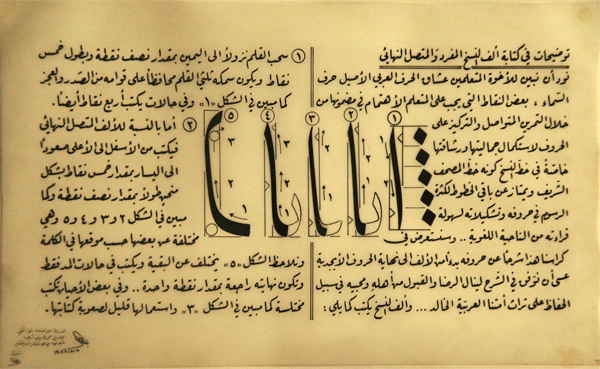 توضيحات في كتابة ألف النسخ المفرد والمتصل النهائي
نود أن نبين للأخوة المتعلمين عشاق الحرف العربي الأصيل حرف
السماء ، بعض النقاط التي يجب على المتعلم الأهتمام في مضمونها من
خلال التمرين المتواصل والتركيز على
الحروف لاستكمال جماليتها ورشاقتها
خاصةً في خط النسخ كونه خط المصحف
الشريف ويمتاز عن باقي الخطوط لكثرة
الرسوم في حروفه وتشكيلاته لسهولة
قراءته من الناحية اللغوية .. وسنستعرض في
كراسنا هذا شرحاً عن حروفه بدءاً من الألف الى نهاية الحروف الأبجدية
عسى أن نوفق في الشرح لينال الرضا والقبول من أهله ومحبيه في سبيل
الحفاظ على تراث أمتنا العربية الخالد ... وألف النسخ يكتب كما يلي :
١ ٢ ٣ ٤ ٥
١ سحب القلم نزولاً الى اليمين بمقدار نصف نقطة وبطول خمس
نقاط ويكون سمكه ثلثي القلم محافظاً على قوامه من الصدر والعجز
كما مبين في الشكل «١» وفي حالات يكتب أربع نقاط أيضاً .
٢ أما بالنسبة للألف المتصل النهائي
فيكتب من الأسفل الى الأعلى صعوداً
الى اليسار بمقدار خمس نقاط بشكل
منحنٍ طولاً بمقدار نصف نقطة وكما
مبين في الشكل ٢ و ٣ و ٤ و ٥ وهي
مختلفة عن بعضها حسب موقعها في الكلمة
ونلاحظ الشكل «٥» يختلف عن البقية ويكتب في حالات المد فقط
وتكون نهايته راجعة بمقدار نقطة واحدة .. وفي بعض الأحيان تكتب
مختلسة كما مبين في الشكل «٣» واستعمالها قليل لصعوبة كتابتها .